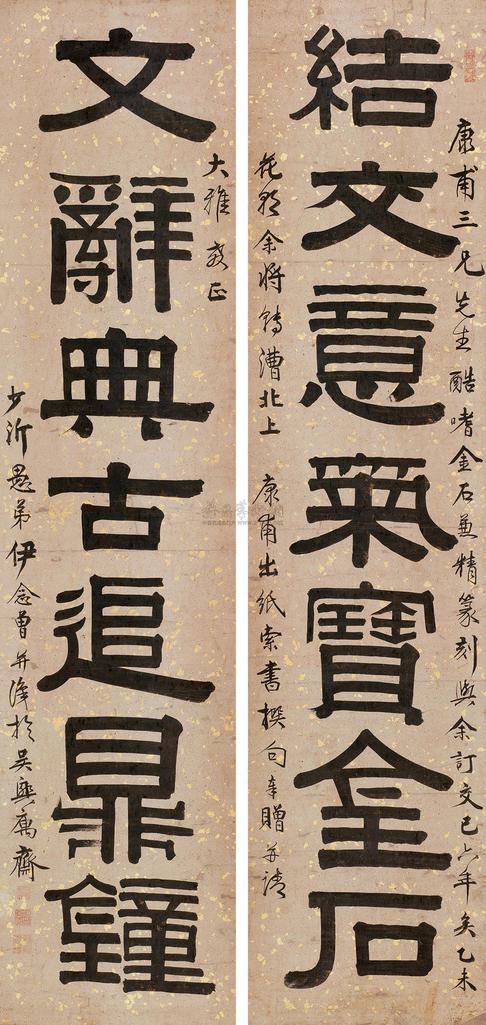 康甫三兄先生酷嗜金石兼精篆刻與余訂交已六年矣乙未
結交意氣寶金石
花朝余將轉漕北上 康甫出紙索書撰句奉贈并請
大雅 教正
文辭典古追鼎鐘
少沂愚弟伊念曾并識於吳興寓齋